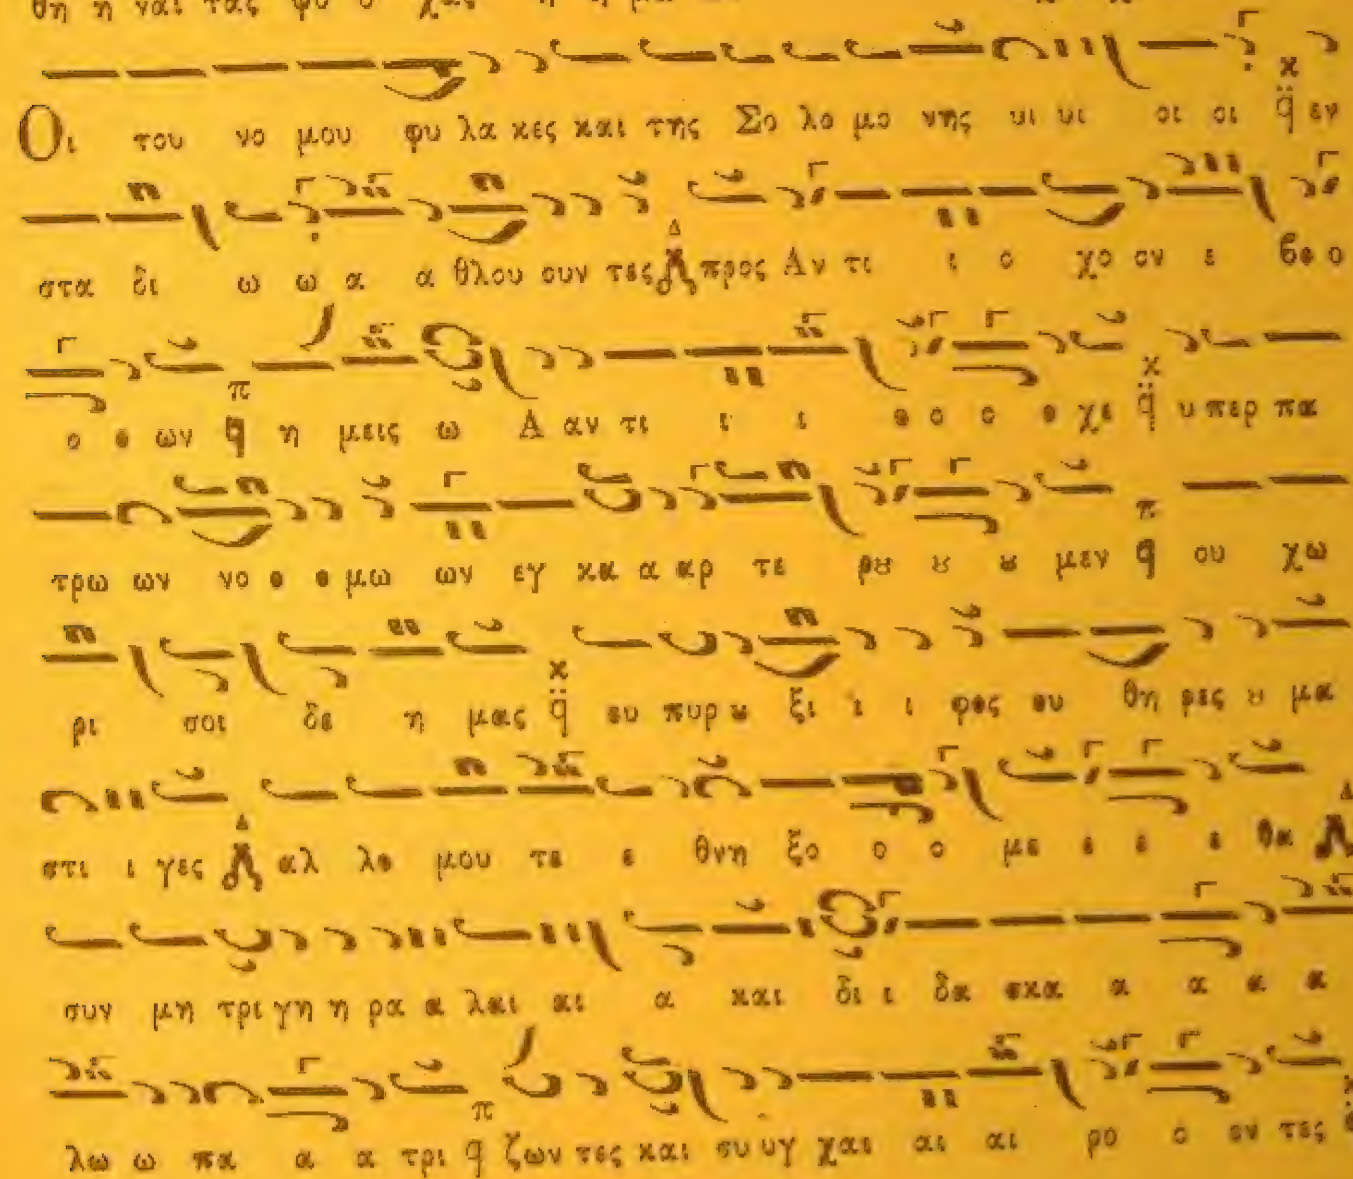 θη η ναι τας ψυ υ χας
Οι του νο μου φυ λα κες και της Σο λο μο νης υι υι οι οι εν
στα δι ω ω α α θλου ουν τες προς Αν τι ι ο χο ον ε βο ο
ο ο ων η μεις ω Α αν τι ι ι ο ο ο ο χε υ περ πα
τρω ων νο ο ο μω ων εγ κα α αρ τε ρȣ ȣ ȣ μεν ου χω
ρι σοι δε η μας ου πυρ ȣ ξι ι ι φος ου θη ρες ȣ μα
στι ι γες αλ λο μου τε ε θνη ξο ο ο με ε ε ε θα
συν μη τρι γη η ρα α λαι αι α και δι ι δα σκα α α α α
λω ω πα α α τρι ζων τες και συ υγ χαι αι αι ρο ο ον τες